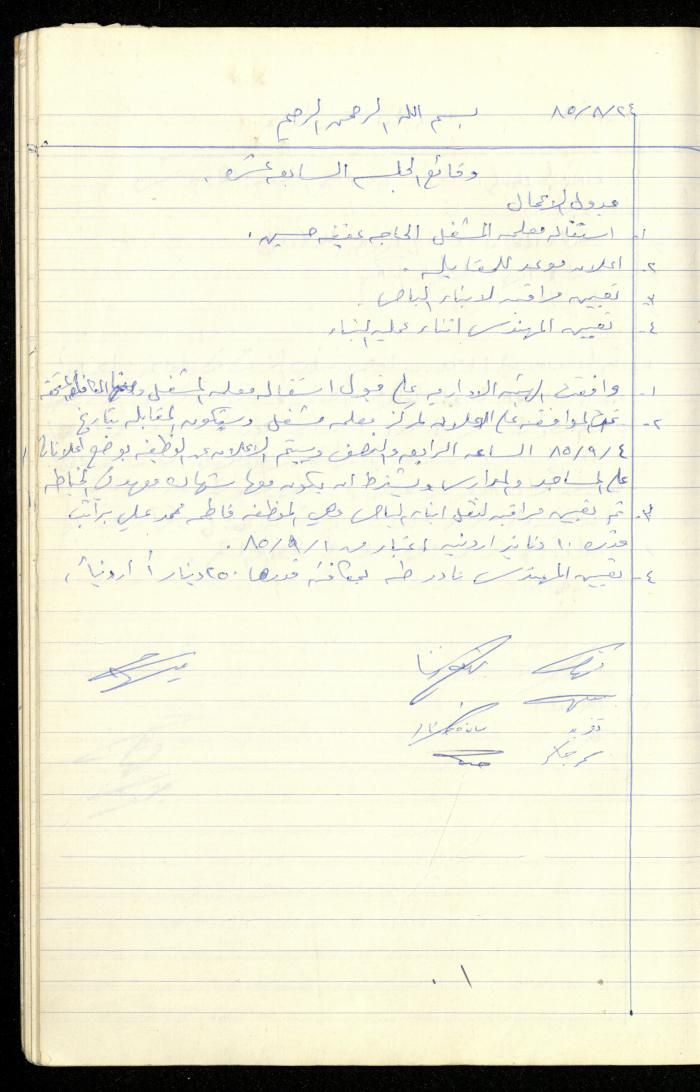 ٨٥/٨/٢٤ بسم الله الرحمن الرحيم
وقائع الجلسه السابعه عشره .
جدول الاعمال
١- استقاله معلمه المشغل الحاجه عفيفه حسين .
٢- اعلان موعد للمقابله .
٣- تعيين مراقبه لابناء الباص .
٤- تعيين المهندس اثناء عمليه البناء
١- وافقت الهيئه الاداريه على قبول استقاله معلمه المشغل
٢- تمت الموافقه على الاعلان لمركز معلمه مشغل وستكون المقابله بتاريخ
٨٥/٩/٤ الساعه الرابعه والنصف وسيتم الاعلان عن الوظيفه بوضع اعلانات
على المساجد والمدارس ويشترط ان يكون معها شهاده معهد الخياطه
٣- تم تعيين مراقبه لنقل ابناء الباص وهي الموظفه فاطمه محمد علي براتب
قدره ١٠ دنانير اردنيه اعتبار من ٨٥/٩/١ .
٤- تعيين المهندس نادر طه بمكافئه قدرها ٢٥٠ دينار أ اردنياً .